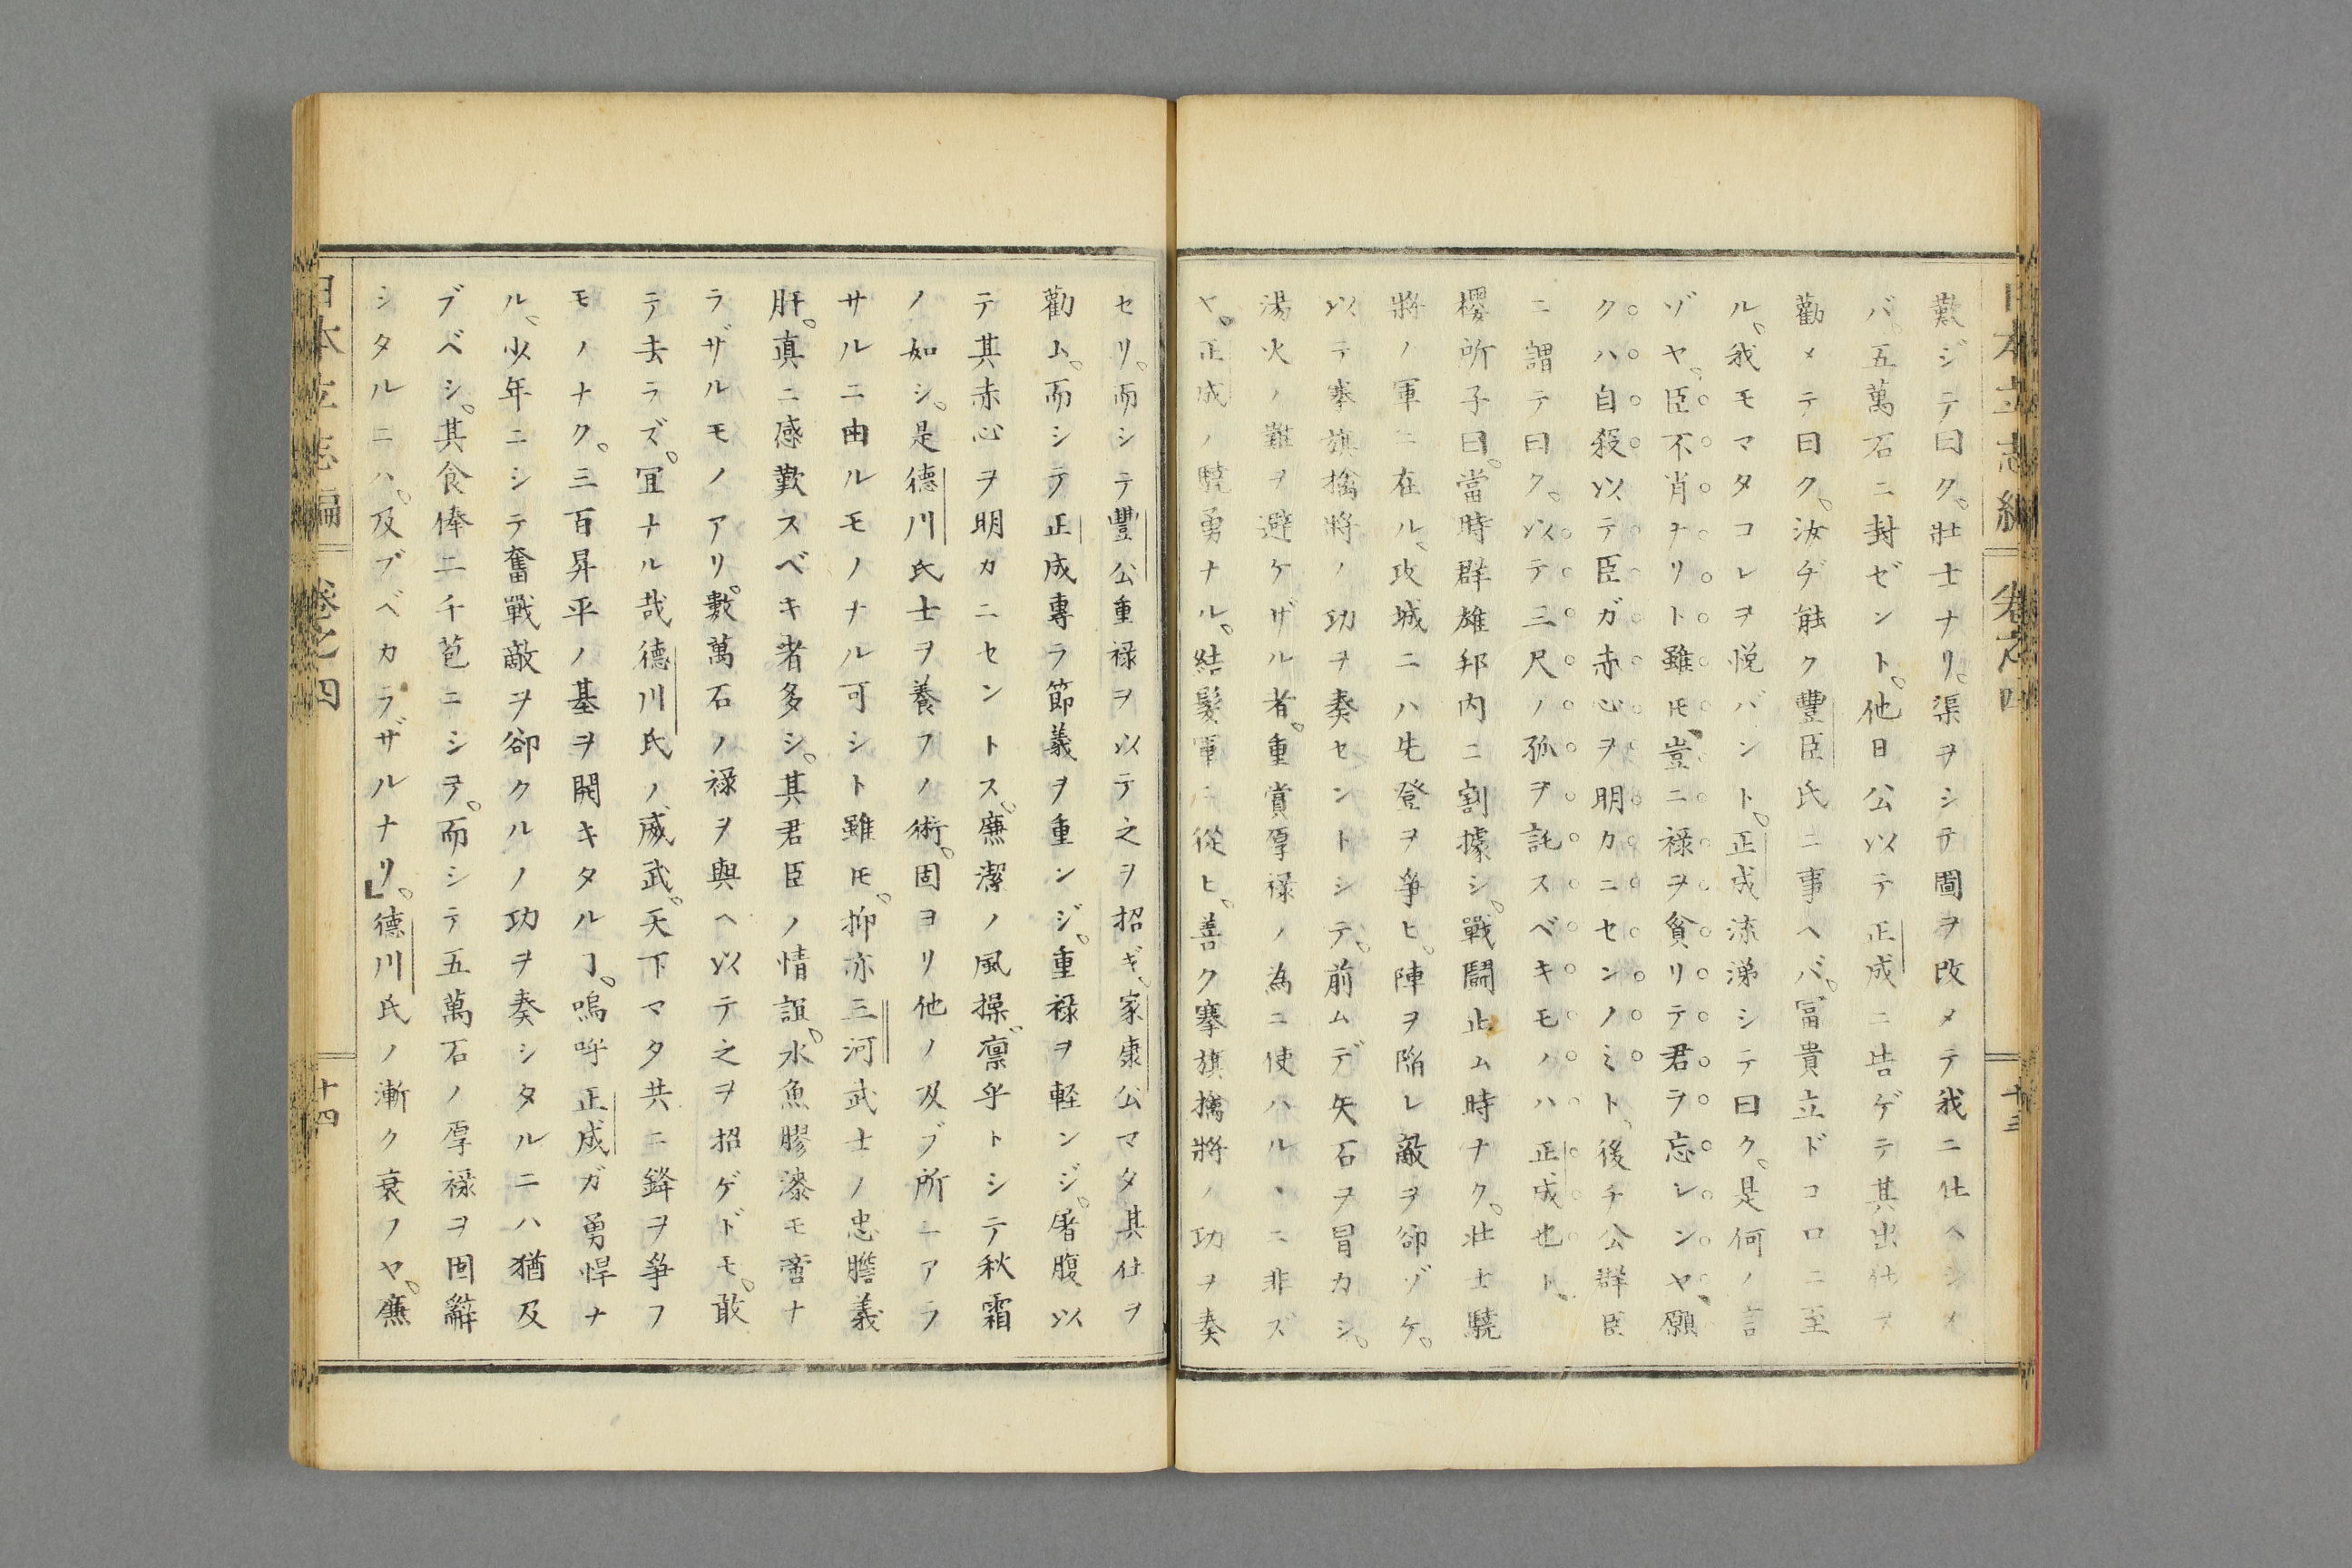 歎ジテ曰ク。壯士ナリ。渠ヲシテ圖ヲ改メテ我ニ仕ヘシメ
バ。五萬石ニ封ゼント。他日公以テ正成ニ告ゲテ其出仕ヲ
勸メテ曰ク。汝ヂ能ク豐臣氏ニ事ヘバ。冨貴立ドコロニ至
ル。我モマタコレヲ悦バント。正成流涕シテ曰ク。是何ノ言
ゾヤ。臣不肖ナリト雖モ。豈ニ禄ヲ貪リテ君ヲ忘レンヤ。願
クハ自殺以テ臣ガ赤心ヲ明カニセンノミト。後チ公群臣
ニ謂テ曰ク。以テ三尺ノ孤ヲ託スベキモノハ正成也ト。
櫻所子曰。當時群雄邦内ニ割據シ。戰鬪止ム時ナク。壮士驍
將ノ軍ニ在ル。攻城ニハ先登ヲ爭ヒ。陣ヲ陥レ敵ヲ卻ゾケ。
以テ搴旗擒將ノ功ヲ奏セントシテ。前ムデ矢石ヲ冒カシ。
湯火ノ難ヲ避ケザル者。重賞厚禄ノ為ニ使ハルヽニ非ズ
ヤ。正成ノ驍勇ナル。結髮軍ニ從ヒ。善ク搴旗擒將ノ功ヲ奏
セリ。而シテ豐公重禄ヲ以テ之ヲ招ギ。家康公マタ其仕ヲ
勸ム。而シテ正成專ラ節義ヲ重ンジ。重禄ヲ軽ンジ。屠腹以
テ其赤心ヲ明カニセントス。廉潔ノ風操。凛乎トシテ秋霜
ノ如シ。是德川氏士ヲ養フノ術。固ヨリ他ノ及ブ所ニアラ
サルニ由ルモノナル可シト雖モ。抑亦三河武士ノ忠膽義
肝。真ニ感歎スベキ者多シ。其君臣ノ情誼。水魚膠漆モ啻ナ
ラザルモノアリ。數萬石ノ禄ヲ與ヘ以テ之ヲ招ゲドモ。敢
テ去ラズ。冝ナル哉德川氏ノ威武。天下マタ共ニ鋒ヲ爭フ
モノナク。三百昇平ノ基ヲ開キタルヿ。嗚呼正成ガ勇悍ナ
ル。少年ニシテ奮戰敵ヲ卻クルノ功ヲ奏シタルニハ猶及
ブベシ。其食俸二千苞ニシヲ。而シテ五萬石ノ厚禄ヲ固辭
シタルニハ。及ブベカラザルナリ。」德川氏ノ漸ク衰フヤ。廉
日本立志編 卷之四 十四